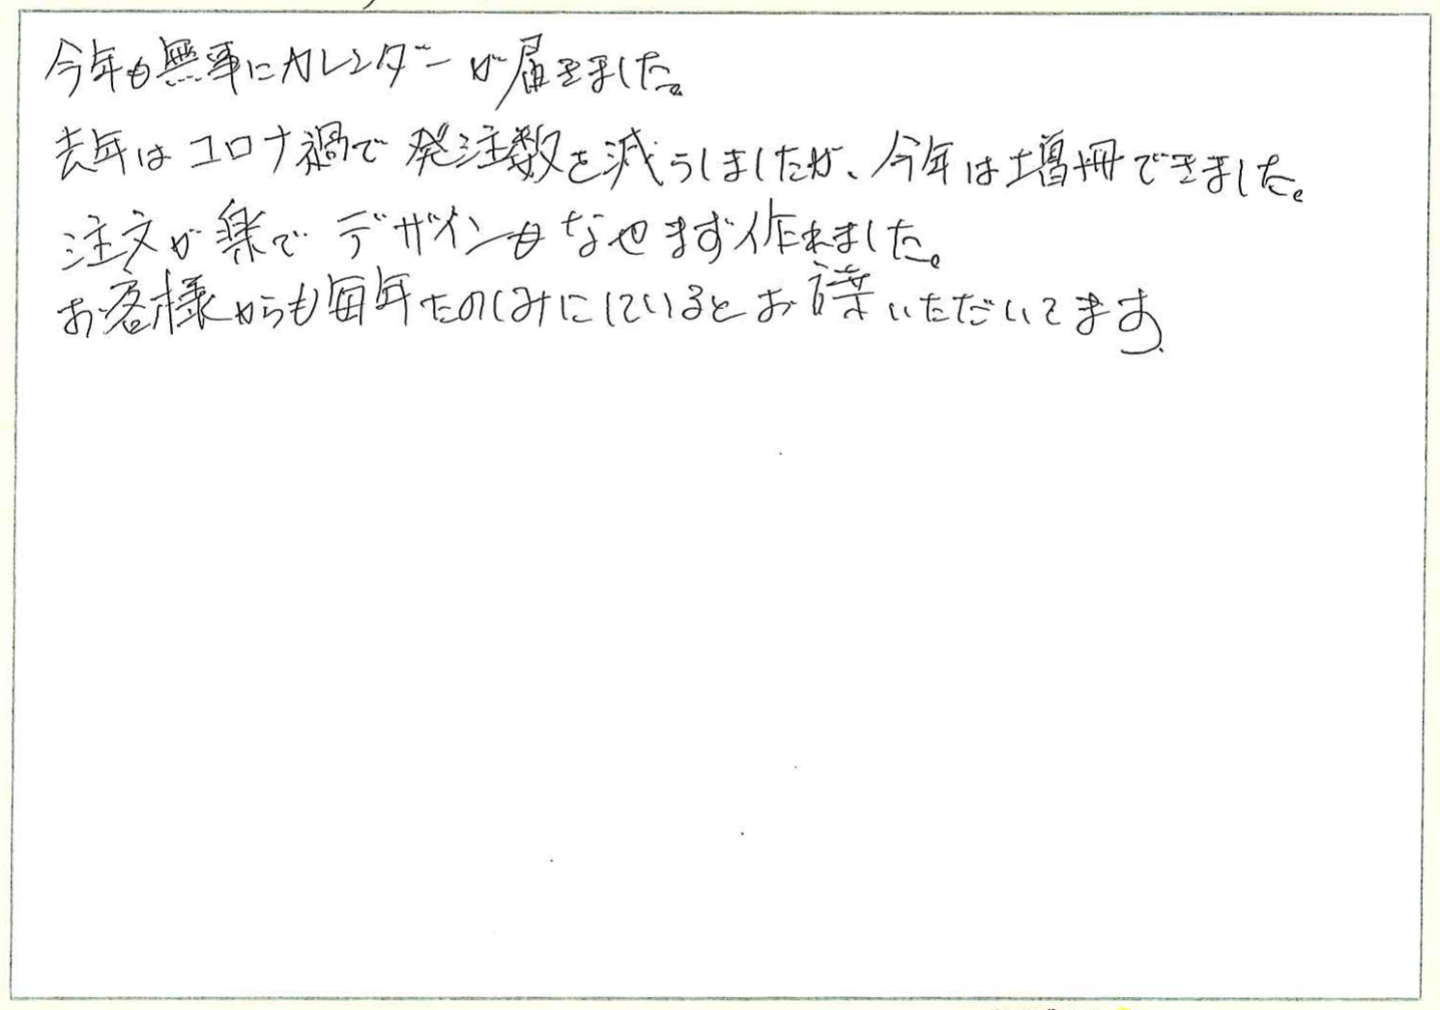 今年も無事にカレンダーが届きました。
去年はコロナ禍で発注数を減らしましたが、今年は増冊できました。
注文が楽でデザインもなやまず作れました。
お客様からも毎年たのしみにしているとお言葉いただいてます